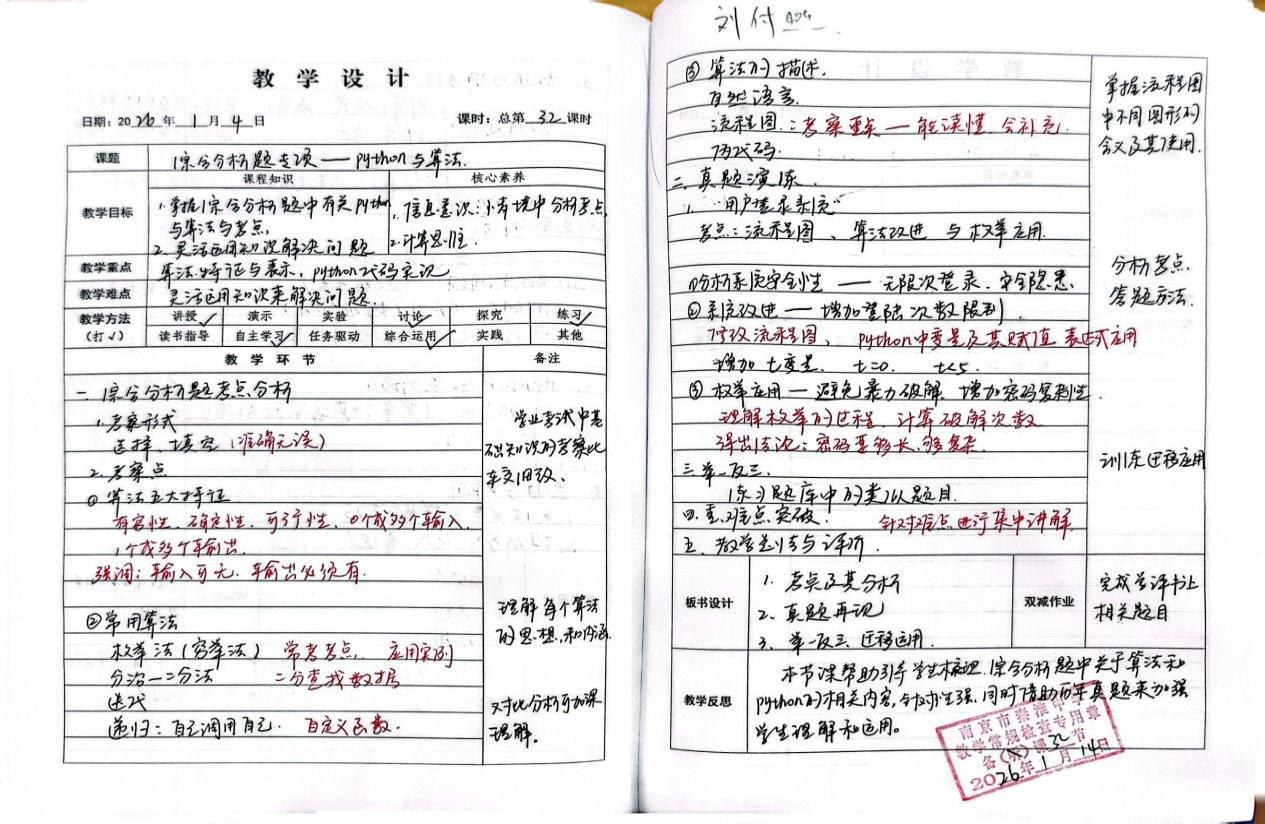 教学设计
日期：2026年1月4日 课时：总第32课时
课题 综合分析题专项——python与算法.
课程知识 核心素养
教学目标
1.掌握综合分析题中有关python与算法与考点.
2.灵活运用知识解决问题
1.信息意识：小情境中分析考点
2.计算思维.
教学重点 算法特征与表示，python代码实现
教学难点 灵活运用知识来解决问题.
教学方法（打√）
讲授√ 演示 实验 讨论√ 探究 练习√
读书指导 自主学习√ 任务驱动 综合运用√ 实践 其他
教学环节 备注
一综合分析题考点分析
1.考察形式
选择、填空（准确无误）
2.考察点
①算法五大特征
有穷性、确定性、可行性、0个或多个输入、
1个或多个输出.
强调：输入可无.输出必须有.
②常用算法
枚举法（穷举法） 常考考点、应用实例
分治—二分法 二分查找数据
迭代
递归：自己调用自己. 自定义函数.
学业考试中基
础知识的考察比
较
理解每个算法
的思想，和内涵.
对比分析可加深
理解。
刘付
③算法的描述.
自然语言.
流程图：考察重点—能读懂.会补充.
伪代码.
二.真题演练.
1."用户登录系统"
考点：流程图、算法改进与枚举应用.
①分析系统安全性——无限次登录.安全隐患.
②系统改进——增加登陆次数限制.
修改流程图、python中变量及其赋值.表达式应用
增加t变量. t=0. t<5.
③枚举应用—避免暴力破解.增加密码复杂性.
理解枚举的过程.计算破解次数
得出结论：密码要够长、够复杂.
三.举一反三.
练习题库中的类似题目.
四.重、难点突破. 针对难点进行集中讲解.
五.教学总结与评价.
掌握流程图
中不同图形的
含义及其使用.
分析考点.
答题方法.
训练迁移应用
板书设计
1.考点及其分析
2.真题再现
3.举一反三.迁移运用.
双减作业
完成学评书上
相关题目
教学反思
本节课帮助引导学生梳理.综合分析题中关于算法和
python的相关内容，针对性强.同时借助历年真题来加强
学生理解和运用。
南京市秦淮中学
教学常规检查专用章
备(课)课32节
2026年1月14日